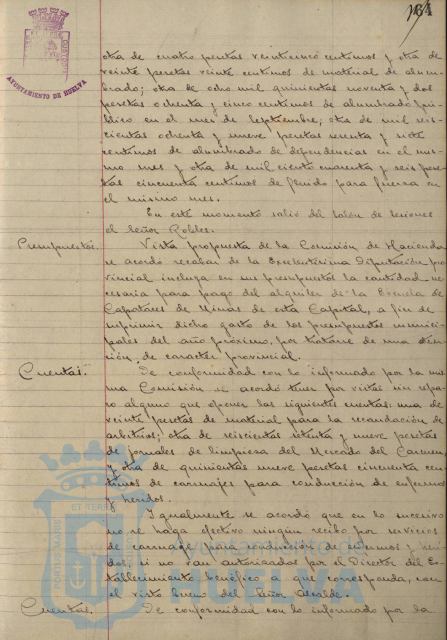 164
AYUNTAMIENTO DE HUELVA
otra de cuatro pesetas veinticinco centimos y otra de
veinte pesetas veinte centimos de material de alum-
brado; otra de ocho mil quinientas noventa y dos
pesetas ochenta y cinco centimos de alumbrado pú-
blico en el mes de Septiembre; otra de mil seis-
cientas ochenta y nueve pesetas y siete
centimos de alumbrado de dependencias en el mis-
mo mes y otra de mil ciento cuarenta y seis pese-
tas cincuenta centimos de fluido para fuerza en
el mismo mes.
En este momento salió del Salón de sesiones
el Señor Robles.
Presupuestos.
Vista propuesta de la Comisión de Hacienda
se acordó recabar de la Excelentísima Diputación pro-
vincial incluya en sus presupuestos la cantidad ne-
cesaria para pago del alquiler de la Escuela de
Capataces de Minas de esta Capital, a fin de
suprimir dicho gasto de los presupuestos munici-
pales del año próximo, por tratarse de una aten-
ción de caracter provincial.
Cuentas.
De conformidad con lo informado por la mis-
ma Comisión se acordó tener por vistas sin repa-
ro alguno que oponer las siguientes cuentas: una de
veinte pesetas de material para la recaudación de
arbitrios; otra de seiscientas setenta y nueve pesetas
de jornales de limpieza del Mercado del Carmen,
y otra de quinientas nueve pesetas cincuenta cen-
timos de carruajes para conducción de enfermos
y heridos.
Igualmente se acordó que en lo sucesivo
no se haga efectivo ningún recibo por servicios
de carruaje para conducción de enfermos y heri-
dos, si no van autorizados por el Director del Es-
tablecimiento benéfico a que corresponda, con
el visto bueno del Señor Alcalde.
Cuentas.
De conformidad con lo informado por la
PORTUS MARIS
ET TERRE
Ayuntamiento de
HUELVA